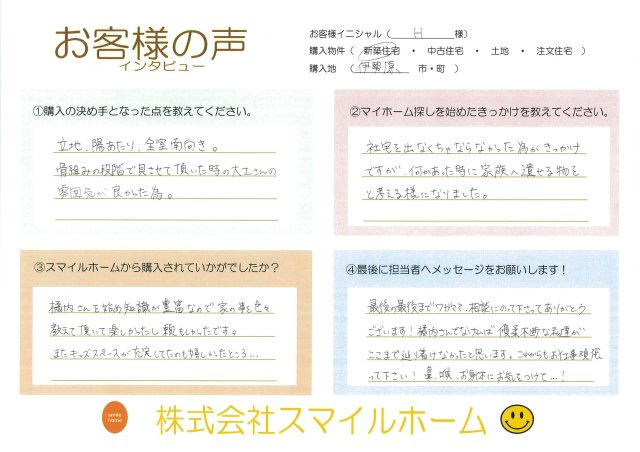 お客様の声
インタビュー
お客様イニシャル（ H 様）
購入物件（ 新築住宅 ・ 中古住宅 ・ 土地 ・ 注文住宅 ）
購入地（ 伊勢原 市・町 ）
①購入の決め手となった点を教えてください。
立地、陽あたり、全室南向き。
骨組みの段階で見させて頂いた時の大工さんの
雰囲気が良かった為。
②マイホーム探しを始めたきっかけを教えてください。
社宅を出なくちゃならなかった為がきっかけ
ですが、何かあった時に家族へ遺せる物を
と考える様になりました。
③スマイルホームから購入されていかがでしたか？
橋内さんを始め知識が豊富なので家の事を色々
教えて頂いて楽しかったし頼もしかったです。
またキッズスペースが充実してたのも嬉しかったところ…
④最後に担当者へメッセージをお願いします！
最後の最後までワガママ、相談にのって下さってありがとう
ございます！橋内さんでなければ優柔不断な私達が
ここまで辿り着けなかったと思います。これからもお仕事頑張
って下さい！鼻、喉、お身体にお気をつけて…！
smile
home
株式会社スマイルホーム